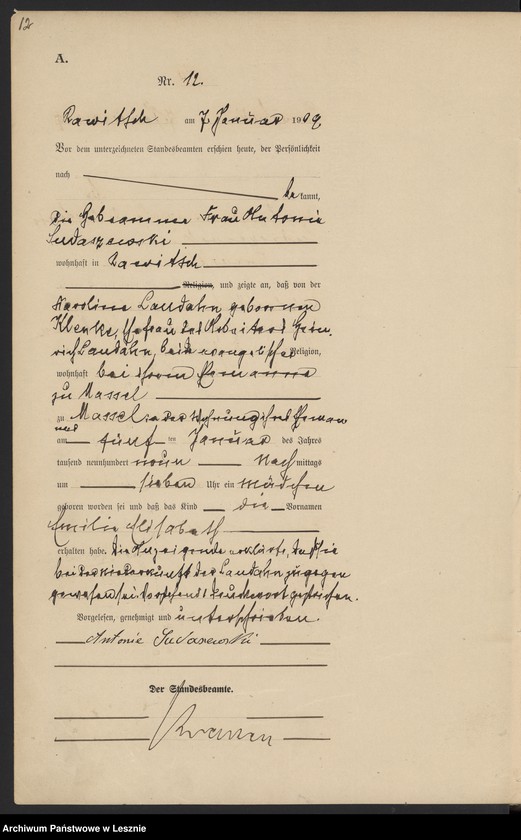 12
A.
Nr. 12.
Rawitsch am 7. Januar 1909
Vor dem unterzeichneten Standesbeamten erschien heute, der Persönlichkeit
nach
bekannt,
die Hebeamme Frau Antonie
Sudaszewski
wohnhaft in Rawitsch
Religion, und zeigte an, daß von der
Karoline Landahn geborenen
Klenke, Ehefrau des Arbeiters Hein-
rich Landahn, beide evangelischer Religion,
wohnhaft bei ihrem Ehemanne
zu Massel
zu Massel in der Wohnung ihres Eheman
nes
am fünften Januar des Jahres
tausend neunhundert neun Nachmittags
um sieben Uhr ein Mädchen
geboren worden sei und daß das Kind die Vornamen
Emilie Elisabeth
erhalten habe. Die Anzeigende erklärte, daß sie
bei der Niederkunft der Landahn zugegen
gewesen sei. Vorstehend 1 Druckwort gestrichen.
Vorgelesen, genehmigt und unterschrieben.
Antonie Sudaszewski
Der Standesbeamte.
Archiwum Państwowe w Lesznie